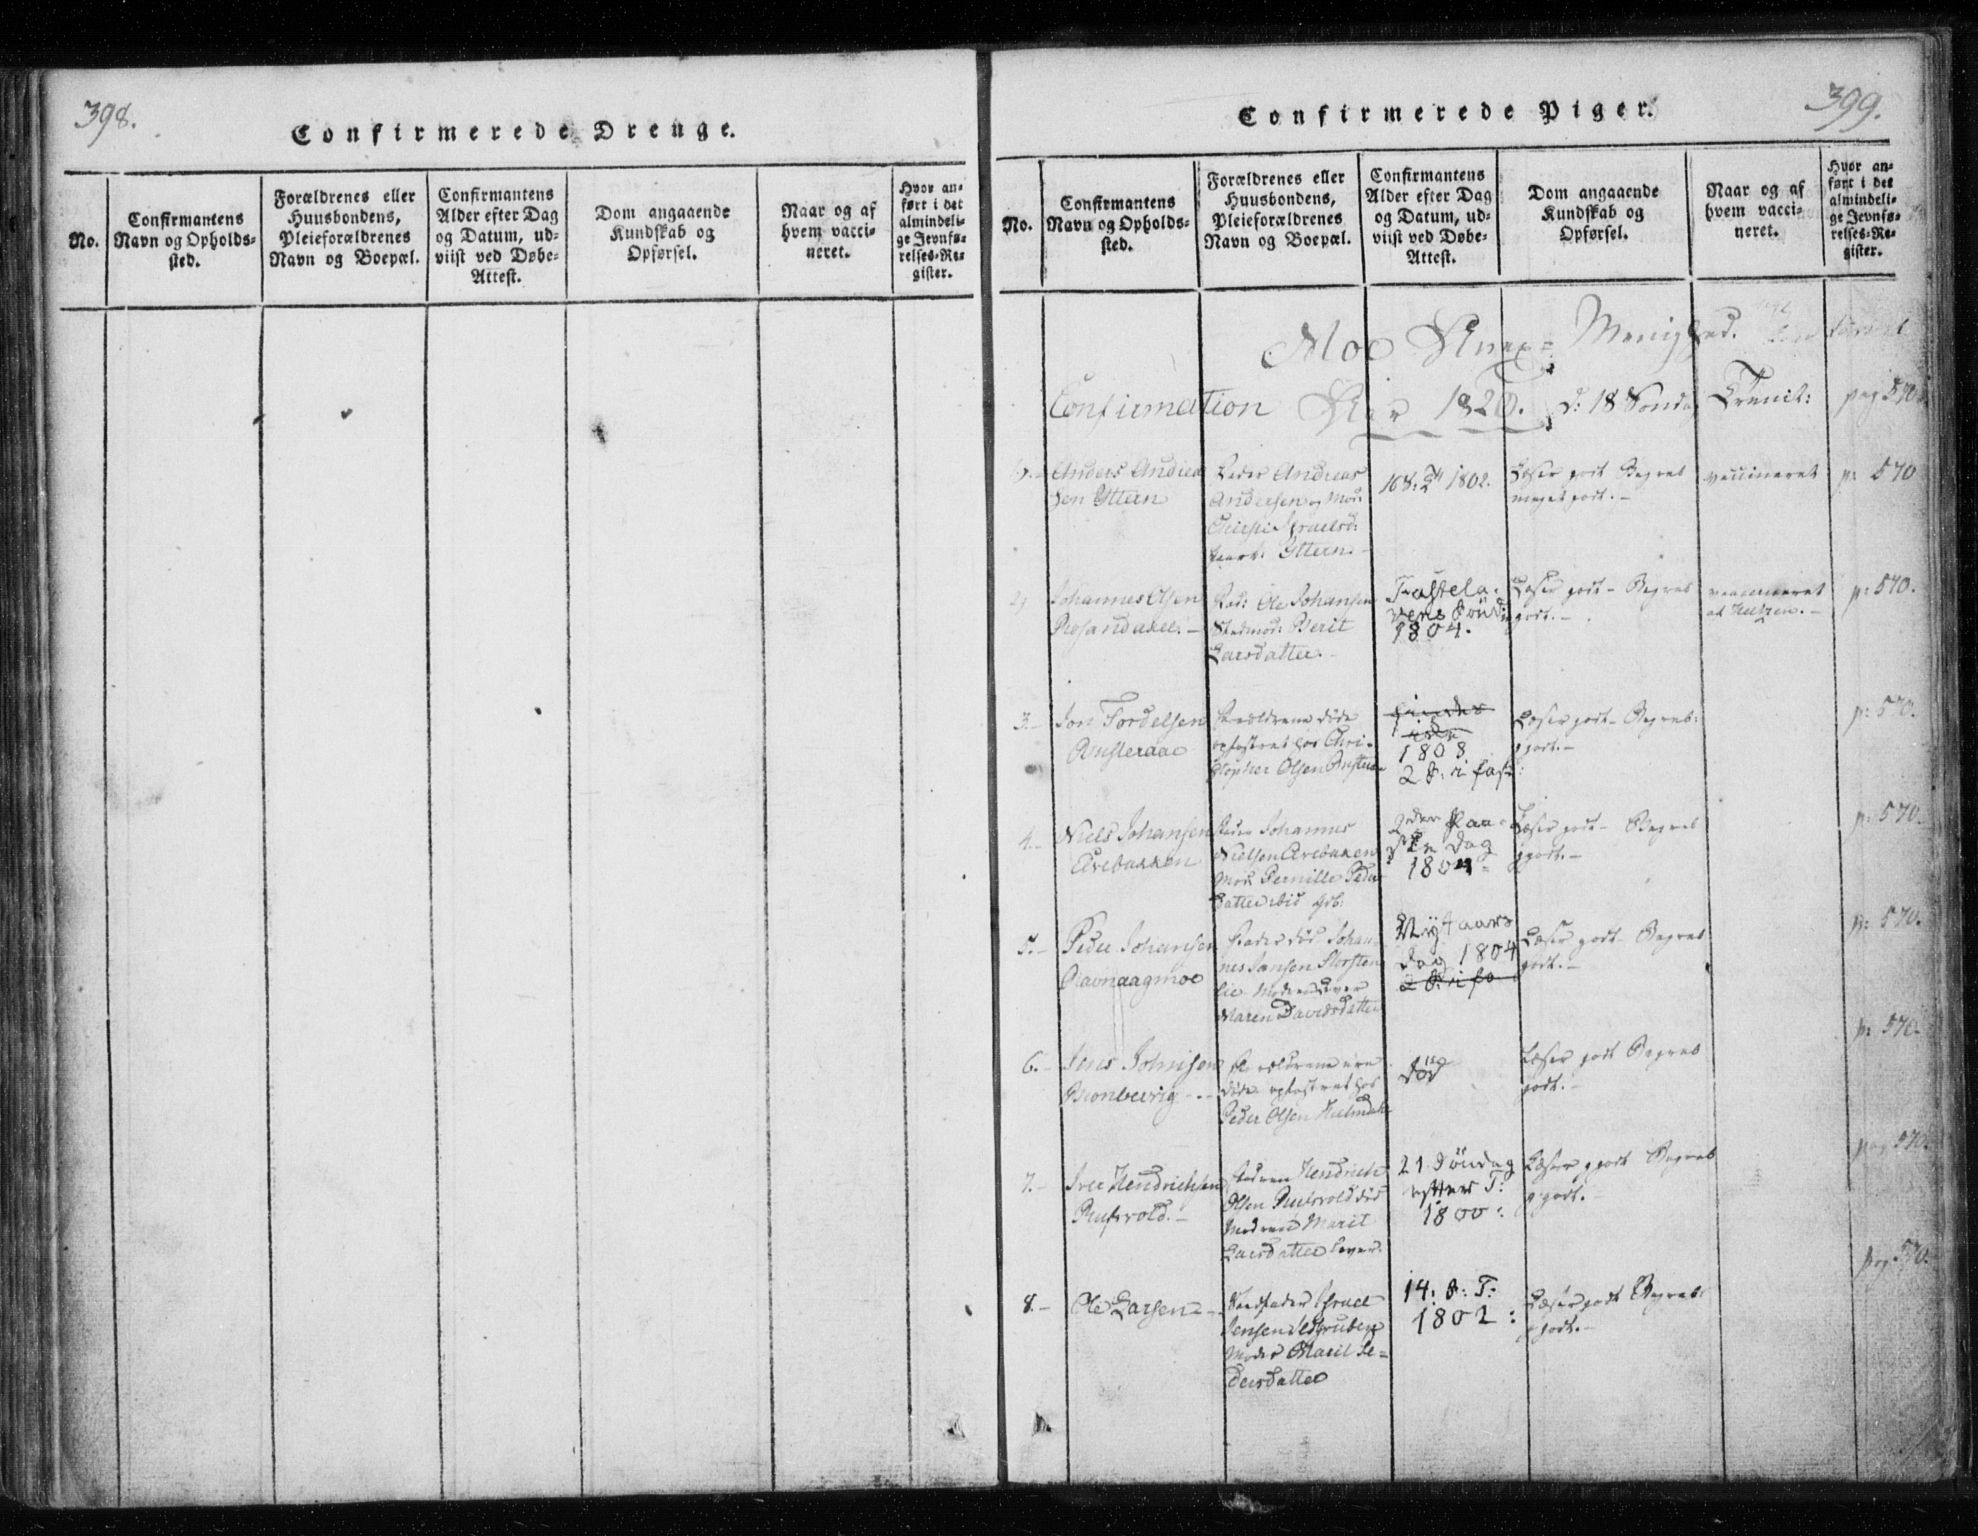 398.
Confirmerede Drenge.
No.
Confirmantens
Navn og Opholds-
sted.
Forældrenes eller
Huusbondens,
Pleieforældrenes
Navn og Boepæl.
Confirmantens
Alder efter Dag
og Datum, ud-
viist ved Døbe-
Attest.
Dom angaaende
Kundskab og
Opførsel.
Naar og af
hvem vacci-
neret.
Hvor an-
ført i det
almindeli-
ge Jevnfø-
relses-Re-
gister.
399.
Confirmerede Piger.
No.
Confirmantens
Navn og Opholds-
sted.
Forældrenes eller
Huusbondens,
Pleieforældrenes
Navn og Boepæl.
Confirmantens
Alder efter Dag
og Datum, ud-
viist ved Døbe-
Attest.
Dom angaaende
Kundskab og
Opførsel.
Naar og af
hvem vacci-
neret.
Hvor an-
ført i det
almindeli-
ge Jevnfø-
relses-Re-
gister.
Moe Anex= Menighed.
Confirmation Aar 1820. d: 18 Sondag Trinit: pag 570
Anders Andrea
sen Yttern
Fader Andreas
Andersen og Mod:
Israelsd:
Yttern.
1802.
Læser godt Begreb
meget godt.-
vaccineret
p: 570
2)
Johannes Olsen
Fad: Ole Johansen
Stedmod: Berit
Larsdatter.
Fastela-
vens Sönd:
1804.
Læser godt - Begreb
godt.-
vaccineret
p: 570.
3.-
Jon Tordelsen
Forældrene döde
opfostret hos Chri-
stopher Olsen
1803
2 S: i fast:
Læser godt - Begreb:
godt.-
p: 570.
4.-
Niels Johansen
Fader Johannes
Nielsen
Mod: Pernille Peder
datter
2den Paa-
ske Dag
1804
Læser godt - Begreb
godt.-
p: 570.
5.-
Peder Johansen
Ravnaagmoe
Fader död Johan-
nes Jansen Storsten
lie Moderen Lever
Maren Davidsdatter
Nytaars
Dag 1804
2 S: i fa
Læser godt - Begreb
godt.-
p: 570.
6.-
Jens Johnisen
Forældrene ere
döde opfostret hos
Peder Olsen
död
Læser godt Begreb
godt.-
p: 570.
7.-
Iver Hendrichsen
Faderen Hendrich
Olsen död
Moderen Marit
Larsdatter lever.
21 Söndag
efter T:
1800:
Læser godt Begreb
godt.-
pag 570.
8.-
Ole Larsen -
Stedfader Israel
Jensen
Moder Marit Pe-
dersdatter
14: S: T:
1802:
Læser godt Begreb
godt.-
pag 570.